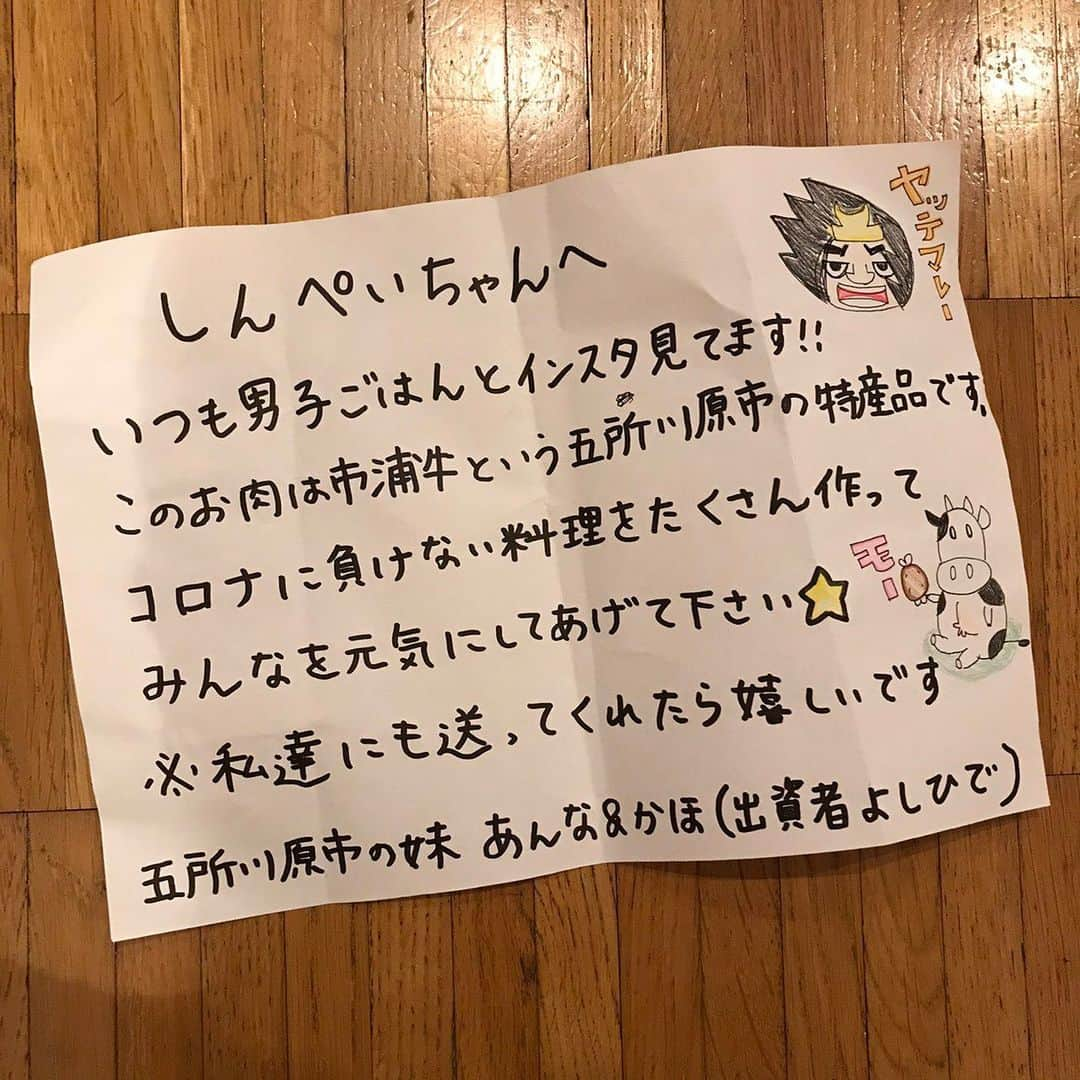 ヤッテマレー
しんぺいちゃんへ
いつも男子ごはんとインスタ見てます!!
このお肉は市浦牛という五所川原市の特産品です。
コロナに負けない料理をたくさん作って
モー
みんなを元気にしてあげて下さい☆
※私達にも送ってくれたら嬉しいです
五所川原市の妹 あんな&かほ(出資者よしひで)